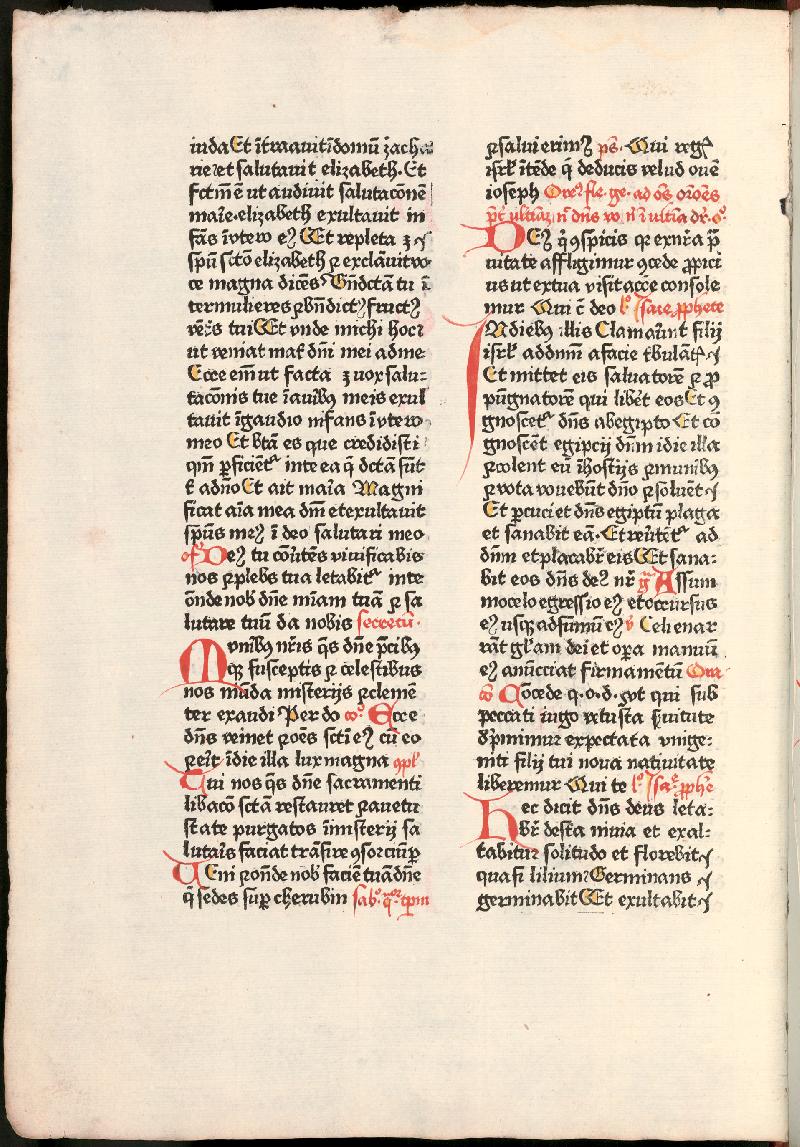 iudaEt ītrauitīdomū zacha
rieet salutauit elizabeth. Et
fctm̄ ē ut audiuit salutacōnē
marīe.elizabeth exultauit in
fās īvtero eꝰ Et repleta ē
spū sctō elizabeth ⁊ exclāuitvo
ce magna dicēs Bn̄dctā tu ī
termulieres ⁊bn̄dictꝰfructꝰ
vētꝛis tui Et vnde michi hoc
ut veniat mat̄ dn̄i mei adme
Ecce em̄ut facta ē uox salu⸗
tacōnis tue īauribꝰ meis exul
tauit īgaudio infans īvtero
meo Et btā es que credidisti
qm̄ ꝑficiēt̄ᵃ inte ea q̄ dctā sūt
t̄ adn̄o Et ait maīa Magni
ficat aīa mea dn̄m etexultauit
spūs meꝰ ī deo salutari meo
of̄ Deꝰ tu cōūtēs viuificabis
nos ⁊plebs tua letabit̄ᵃ inte
ōnde nob dn̄e mīam tuā ⁊ sa
lutare tuū da nobis secretū.
Munibꝰ nr̄is q̄s dn̄e p̄cibꝰ
qꝫ susceptis ⁊ celestibus
nos mūda misterijs ⁊clemē
ter exaudi Per do co᷒ Ecce
dn̄s veniet ⁊oēs sctī eꝰ cū eo
⁊eit̄ īdie illa lux magna ꝯpl᷒
Qui nos q̄s dn̄e sacramenti
libacō sctā restauret ⁊auetu
state purgatos īmisterij sa
lutaīs faciat trāsire ꝯsorciūꝑ
Ueni ⁊ōnde nob faciē tuādn̄e
q̄ sedes suꝑ cherubin sab᷒ qᵒʳ tꝑm
⁊salui erimꝰ ps᷒. Qui regꝭ
isrl̄ ītēde q̄ deducis velud ouē
ioseph Ore᷒ fle. ge. ad oēs or̄oēs
p̄t᷒ ultīaꝫ n̄ dn̄s vo n̄ ī ultīa dr̄. o᷒
Deꝰ q̄ ꝯspicis qꝛ exnr̄a p̄
uitate affligimur ꝯcede ꝓpici
us ut extua visitacōe console
mur Qui c̄ deo l᷒ Isaie ꝓphete
In diebꝰ illis Clamaūnt filij
isrl̄ addn̄m a facie tbulātꝭ
Et mittet eis saluatorē ⁊ ꝓ
pūgnatorē qui libēt eos Et ꝯ
gnoscet̄ᵃ dn̄s abegipto Et cō
gnoscēt egipcij dn̄m īdie illa
⁊colent eū īhostijs ⁊munibꝰ
⁊vota vouebūt dn̄o ⁊soluēt
Et ꝑcuciet dn̄s egiptū plaga
et sanabit eā. Et reūtēt̄ᵃ ad
dn̄m etplacabr̄ eis Et sana⸗
bit eos dn̄s deꝰ nr̄ gᵃ A sum
mocelo egressio eꝰ etoccursus
eꝰ usqꝫ adsūmū eꝰ v̄ Celi enar
rāt gl̄am dei et oꝑa manuū
eꝰ anūcciat firmamentū Ora
co᷒ Concede q. o. d. got qui sub
peccati iugo vetusta s̄uitute
dꝑmimur expectata vnige⸗
niti filij tui noua natiuitate
liberemur Qui te l᷒ Isa᷒ ꝓphe
Hec dicit dn̄s deus leta⸗
br̄ deserta inuia et exal⸗
tabitur solitudo et florebit
quasi lilium Germinans
germinabit Et exultabit